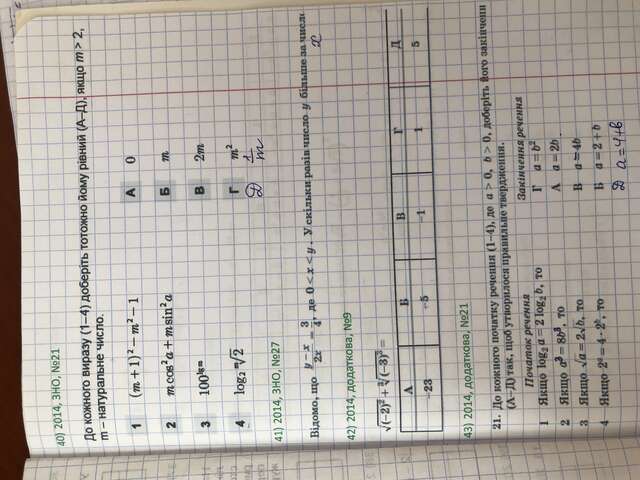 40) 2014, ЗНО, №21
До кожного виразу (1–4) доберіть тотожно йому рівний (А–Д), якщо m > 2,
m – натуральне число.
1 (m + 1)² − m² − 1 А 0
2 m cos² a + m sin² a Б m
3 В 2m
4 Г m²
Д 1/m
41) 2014, ЗНО, №27
Відомо, що (y − x)/(2x) = 3/4, де 0 < x < y. У скільки разів число y більше за число
x
42) 2014, додаткова, №9
А Б В Г Д
−23 −5 −1 1 5
43) 2014, додаткова, №21
21. До кожного початку речення (1–4), де a > 0, b > 0, доберіть його закінчення
(А–Д) так, щоб утворилося правильне твердження.
Початок речення Закінчення речення
1 Якщо log₂ a = 2 log₂ b, то Г a = b²
2 Якщо a³ = 8b³, то А a = 2b
3 Якщо √a = 2√b, то В a = 4b
4 Якщо 2ᵃ = 4 · 2ᵇ, то Б a = 2 + b
Д a = 4 + b